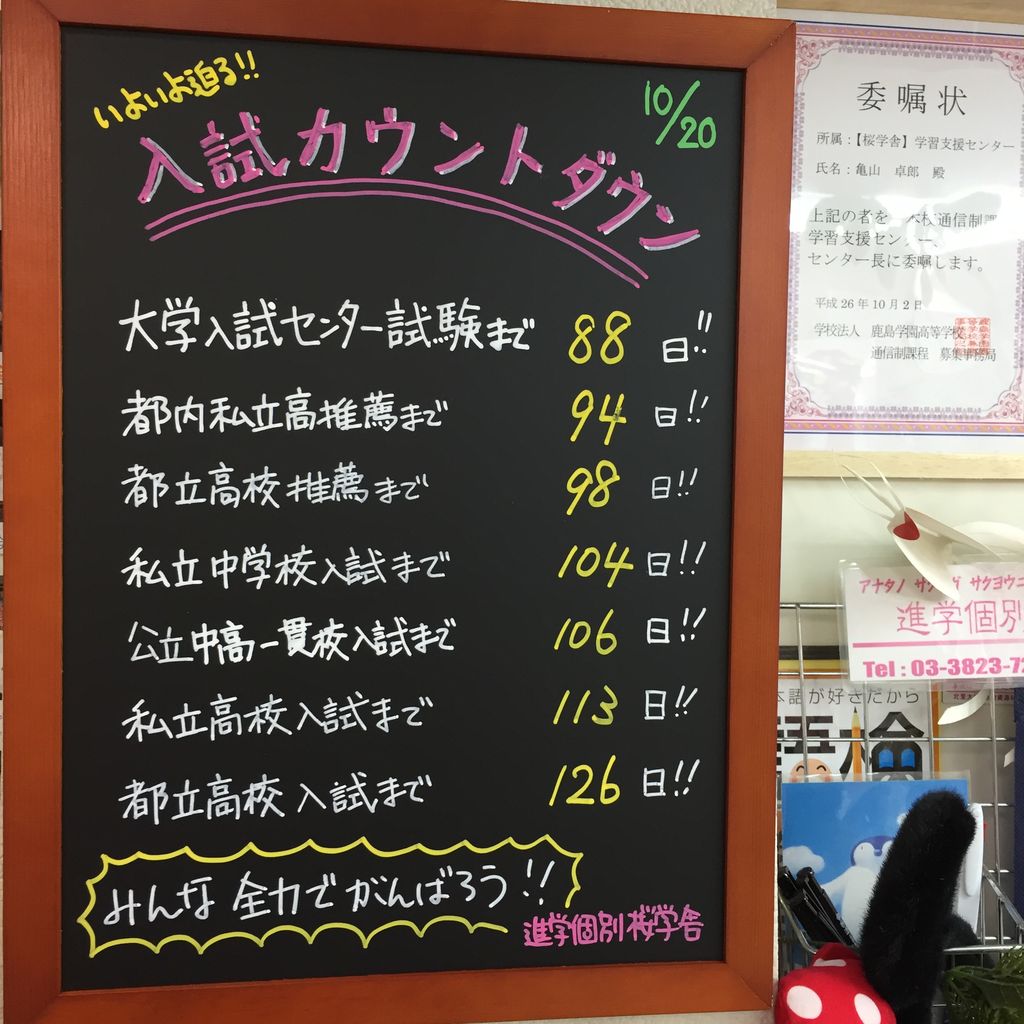 いよいよ迫る!!
10/20
入試カウントダウン
大学入試センター試験まで 88日!!
都内私立高推薦まで 94日!!
都立高校推薦まで 98日!!
私立中学校入試まで 104日!!
公立中高一貫校入試まで 106日!!
私立高校入試まで 113日!!
都立高校入試まで 126日!!
みんな全力でがんばろう!!
進学個別桜学舎
委嘱状
所属:【桜学舎】学習支援センター
氏名:亀山 卓郎 殿
上記の者を 本校通信制
学習支援センター、
センター長に委嘱します。
平成26年10月2日
学校法人 鹿島学園高等学校
通信制課程 募集事務局
アナタノ
進学個別
Tel:03-3823-7
本語が好きだから